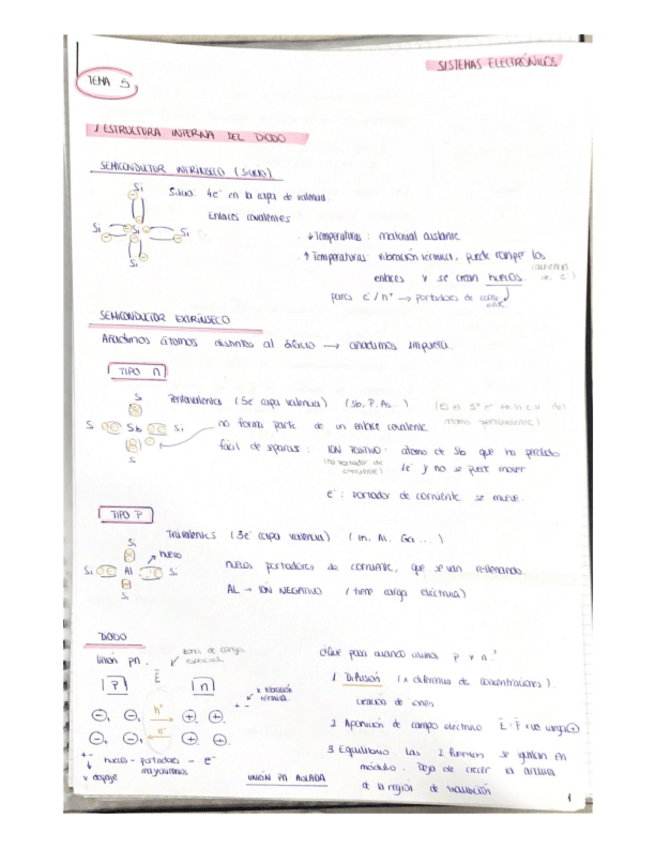 SISTEMAS ELECTRÓNICOS
TEMA 5
1 ESTRUCTURA INTERNA DEL DIODO
SEMICONDUCTOR INTRÍNSECO (SILICIO)
Si
Silicio: 4e⁻ en la capa de valencia
Enlaces covalentes
Si Si Si
Si
· ↓ Temperaturas: material aislante
· ↑ Temperaturas: vibración térmica, puede romper los
enlaces y se crean huecos.
pares e⁻/h⁺ → portadores de corriente
SEMICONDUCTOR EXTRÍNSECO
Añadimos átomos distintos al silicio → añadimos impureza.
TIPO n
Si
Pentavalentes (5e⁻ capa valencia) (Sb, P, As...)
Si Sb Si
no forma parte de un enlace covalente
fácil de separar: ION POSITIVO: átomo de Sb que ha perdido
Si
(no portador de corriente)
1e⁻ y no se puede mover
e⁻: portador de corriente se mueve.
TIPO P
Si
Trivalentes (3e⁻ capa valencia) (In, Al, Ga...)
hueco
Si Al Si
huecos portadores de corriente, que se van rellenando.
Si
AL → ION NEGATIVO (tiene carga eléctrica)
DIODO
Unión pn.
zona de carga espacial
E
¿Qué pasa cuando unimos p y n?
P n
x vibración térmica
1 Difusión (x diferencia de concentraciones).
creación de iones
h⁺
e⁻
2 Aparición de campo eléctrico
3 Equilibrio. Las 2 fuerzas se igualan en
huecos - portadores - e⁻
mayoritarios
módulo. Deja de crecer la anchura
x dopaje
UNIÓN PN AISLADA
de la región de transición
1